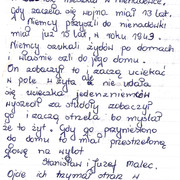 Gdy zaczęła się wojna miał 13 lat.
Niemcy przyszli do nienadówki
miał już 15 lat, w roku 1943
Niemcy szukali żydów po domach
i właśnie szli do jego domu.
On zobaczył to i zaczął uciekać
w pole w żyta ale nie udała
się ucieczka jeden niemców
wyszedł za stodoły zobaczył
go i zaczął strzela bo myślał
że to żyd. Gdy go przyniesiono
do domu to miał przestrzeloną
głowę na wylot
Stanisław i Józef Malec.
Ojciec ich trzymał straż w